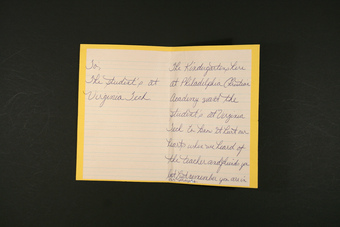 To,
The Student's at
Virginia Tech
The Kindergarten, here
at Philadelphia Christian
Academy want the
student's at Virginia
Tech to know It hurt our
hearts when we heard of
the teacher and friends
but remember you are in